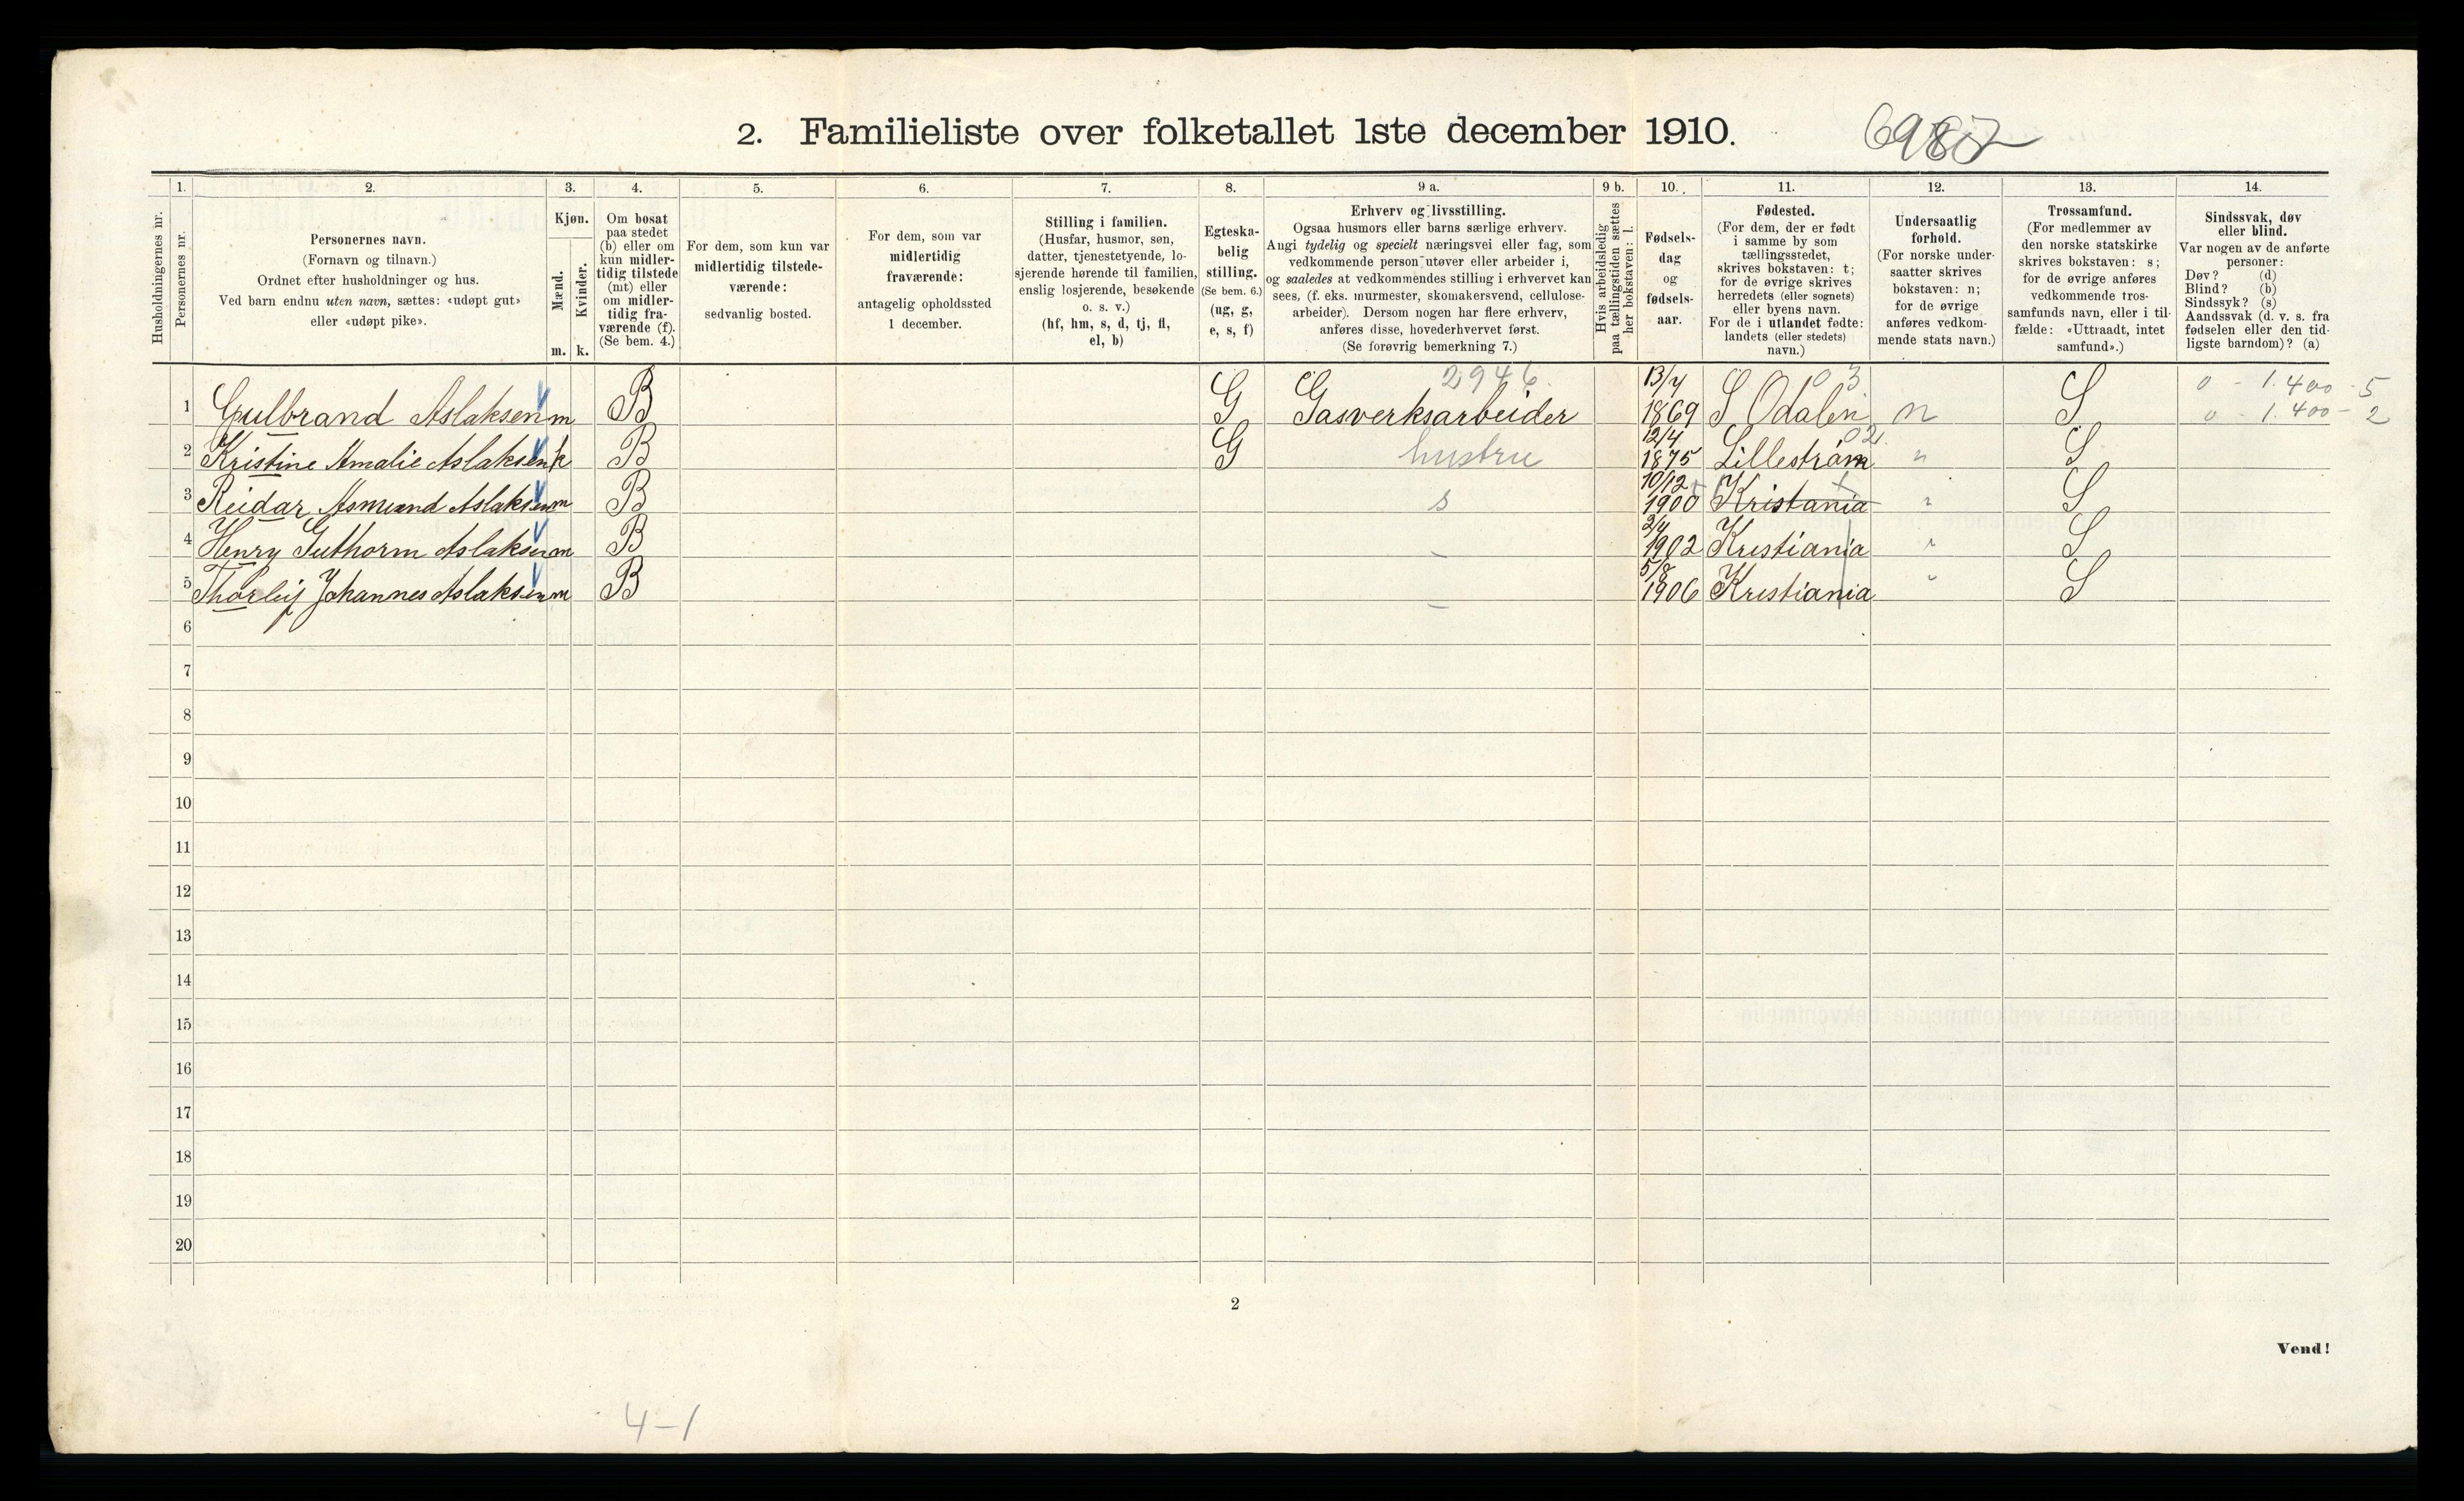 2. Familieliste over folketallet 1ste december 1910.
1. 2. 3. 4. 5. 6. 7. 8. 9 a. 9 b. 10. 11. 12. 13. 14.
Husholdningernes nr.
Personernes nr.
Personernes navn.
(Fornavn og tilnavn.)
Ordnet efter husholdninger og hus.
Ved barn endnu uten navn, sættes: «udøpt gut»
eller «udøpt pike».
Kjøn.
Mænd.
Kvinder.
m. k.
Om bosat
paa stedet
(b) eller om
kun midler-
tidig tilstede
(mt) eller
om midler-
tidig fra-
værende (f).
(Se bem. 4.)
For dem, som kun var
midlertidig tilstede-
værende:
sedvanlig bosted.
For dem, som var
midlertidig
fraværende:
antagelig opholdssted
1 december.
Stilling i familien.
(Husfar, husmor, søn,
datter, tjenestetyende, lo-
sjerende hørende til familien,
enslig losjerende, besøkende
o. s. v.)
(hf, hm, s, d, tj, fl,
el, b)
Egteska-
belig
stilling.
(Se bem. 6.)
(ug, g,
e, s, f)
Erhverv og livsstilling.
Ogsaa husmors eller barns særlige erhverv.
Angi tydelig og specielt næringsvei eller fag, som
vedkommende person utøver eller arbeider i,
og saaledes at vedkommendes stilling i erhvervet kan
sees, (f. eks. murmester, skomakersvend, cellulose-
arbeider). Dersom nogen har flere erhverv,
anføres disse, hovederhvervet først.
(Se forøvrig bemerkning 7.)
Hvis arbeidsledig
paa tællingstiden sættes
her bokstaven: l.
Fødsels-
dag
og
fødsels-
aar.
Fødested.
(For dem, der er født
i samme by som
tællingsstedet,
skrives bokstaven: t;
for de øvrige skrives
herredets (eller sognets)
eller byens navn.
For de i utlandet fødte:
landets (eller stedets)
navn.)
Undersaatlig
forhold.
(For norske under-
saatter skrives
bokstaven: n;
for de øvrige
anføres vedkom-
mende stats navn.)
Trossamfund.
(For medlemmer av
den norske statskirke
skrives bokstaven: s;
for de øvrige anføres
vedkommende tros-
samfunds navn, eller i til-
fælde: «Uttraadt, intet
samfund».)
Sindssvak, døv
eller blind.
Var nogen av de anførte
personer:
Døv? (d)
Blind? (b)
Sindssyk? (s)
Aandssvak (d. v. s. fra
fødselen eller den tid-
ligste barndom)? (a)
2946. 13/4 03 0 - 1.400 - 5
1 Gulbrand Aslaksen m B G Gasverksarbeider 1869 S Odalen n S 0 - 1.400 - 2
12/4 02.
2 Kristine Amalie Aslaksen k B G hustru 1875 Lillestrøm " S
10/12 t
3 Reidar Asmund Aslaksen m B s 1900 Kristania " S
4 Henry Guthorm Aslaksen m B - 1902 Kristiania " S
5/8
5 Thorleif Johannes Aslaksen m B - 1906 Kristiania " S
6
7
8
9
10
11
12
13
14
15
16
17
18
19
20
2
Vend!
4-1